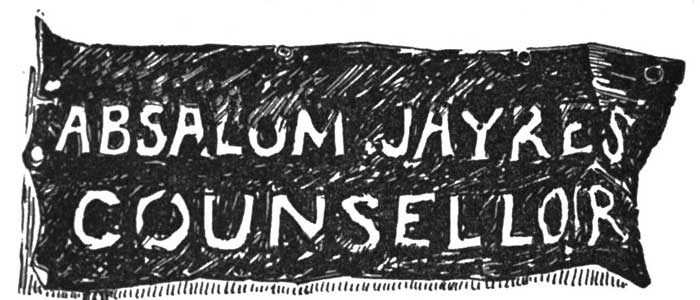 ABSALOM JAYRES
COUNSELLOR